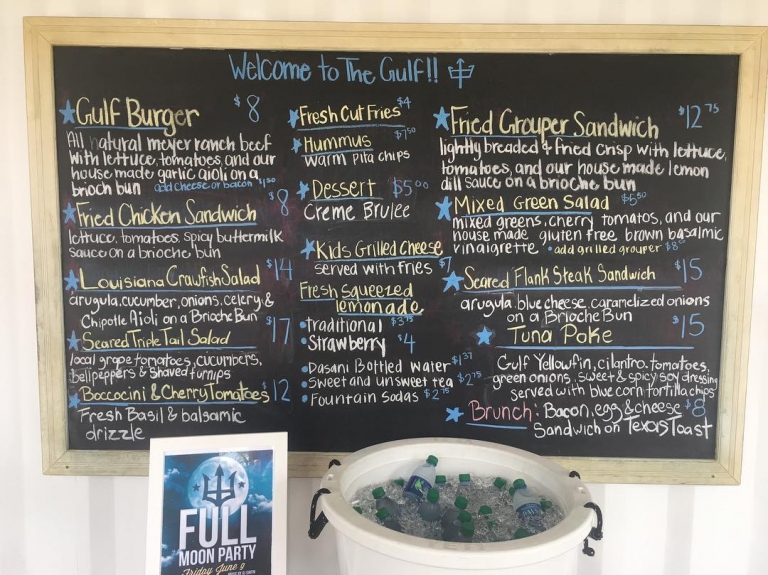 Welcome to The Gulf!!
Gulf Burger $8
All natural meyer ranch beef
with lettuce, tomatoes, and our
house made garlic aioli on a
brioch bun add cheese or bacon $1.50
Fried Chicken Sandwich $8
lettuce, tomatoes, spicy buttermilk
sauce on a brioche bun
Louisiana Crawfish Salad $14
arugula, cucumber, onions, celery &
Chipotle Aioli on a Brioche Bun
Seared Triple Tail Salad $17
local grape tomatoes, cucumbers,
bellpeppers & shaved turnips
Boccocini & Cherry Tomatoes $12
Fresh Basil & balsamic
drizzle
Fresh Cut Fries $4
Hummus $7.50
warm pita chips
Dessert $5.00
Creme Brulee
Kids Grilled Cheese
served with fries $7
Fresh Squeezed
lemonade
Traditional $3.75
Strawberry $4
Dasani Bottled Water $1.37
Sweet and unsweet tea $2.75
Fountain Sodas $2.75
Fried Grouper Sandwich $12.75
lightly breaded & fried crisp with lettuce,
tomatoes, and our house made lemon
dill sauce on a brioche bun
Mixed Green Salad $5.50
mixed greens, cherry tomatos, and our
house made gluten free brown basalmic
vinaigrette • add grilled grouper $8
Seared Flank Steak Sandwich $15
arugula, blue cheese, caramelized onions
on a Brioche Bun
Tuna Poke $15
Gulf Yellowfin, cilantro, tomatoes,
green onions, sweet & spicy soy dressing
served with blue corn tortilla chips
Brunch: Bacon, egg & cheese $8
Sandwich on Texas Toast
FULL
MOON PARTY
Friday June 9